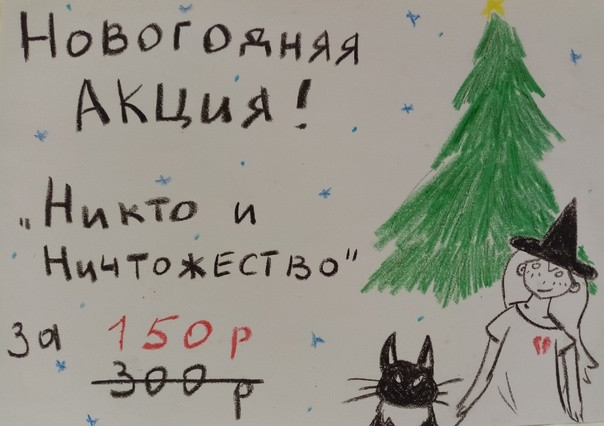 Новогодняя
Акция!
„Никто и
Ничтожество"
за 150р
300р